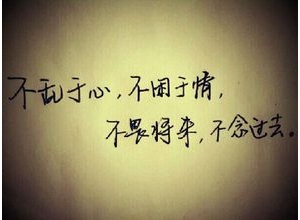 不乱于心，不困于情，
不畏将来，不念过去。